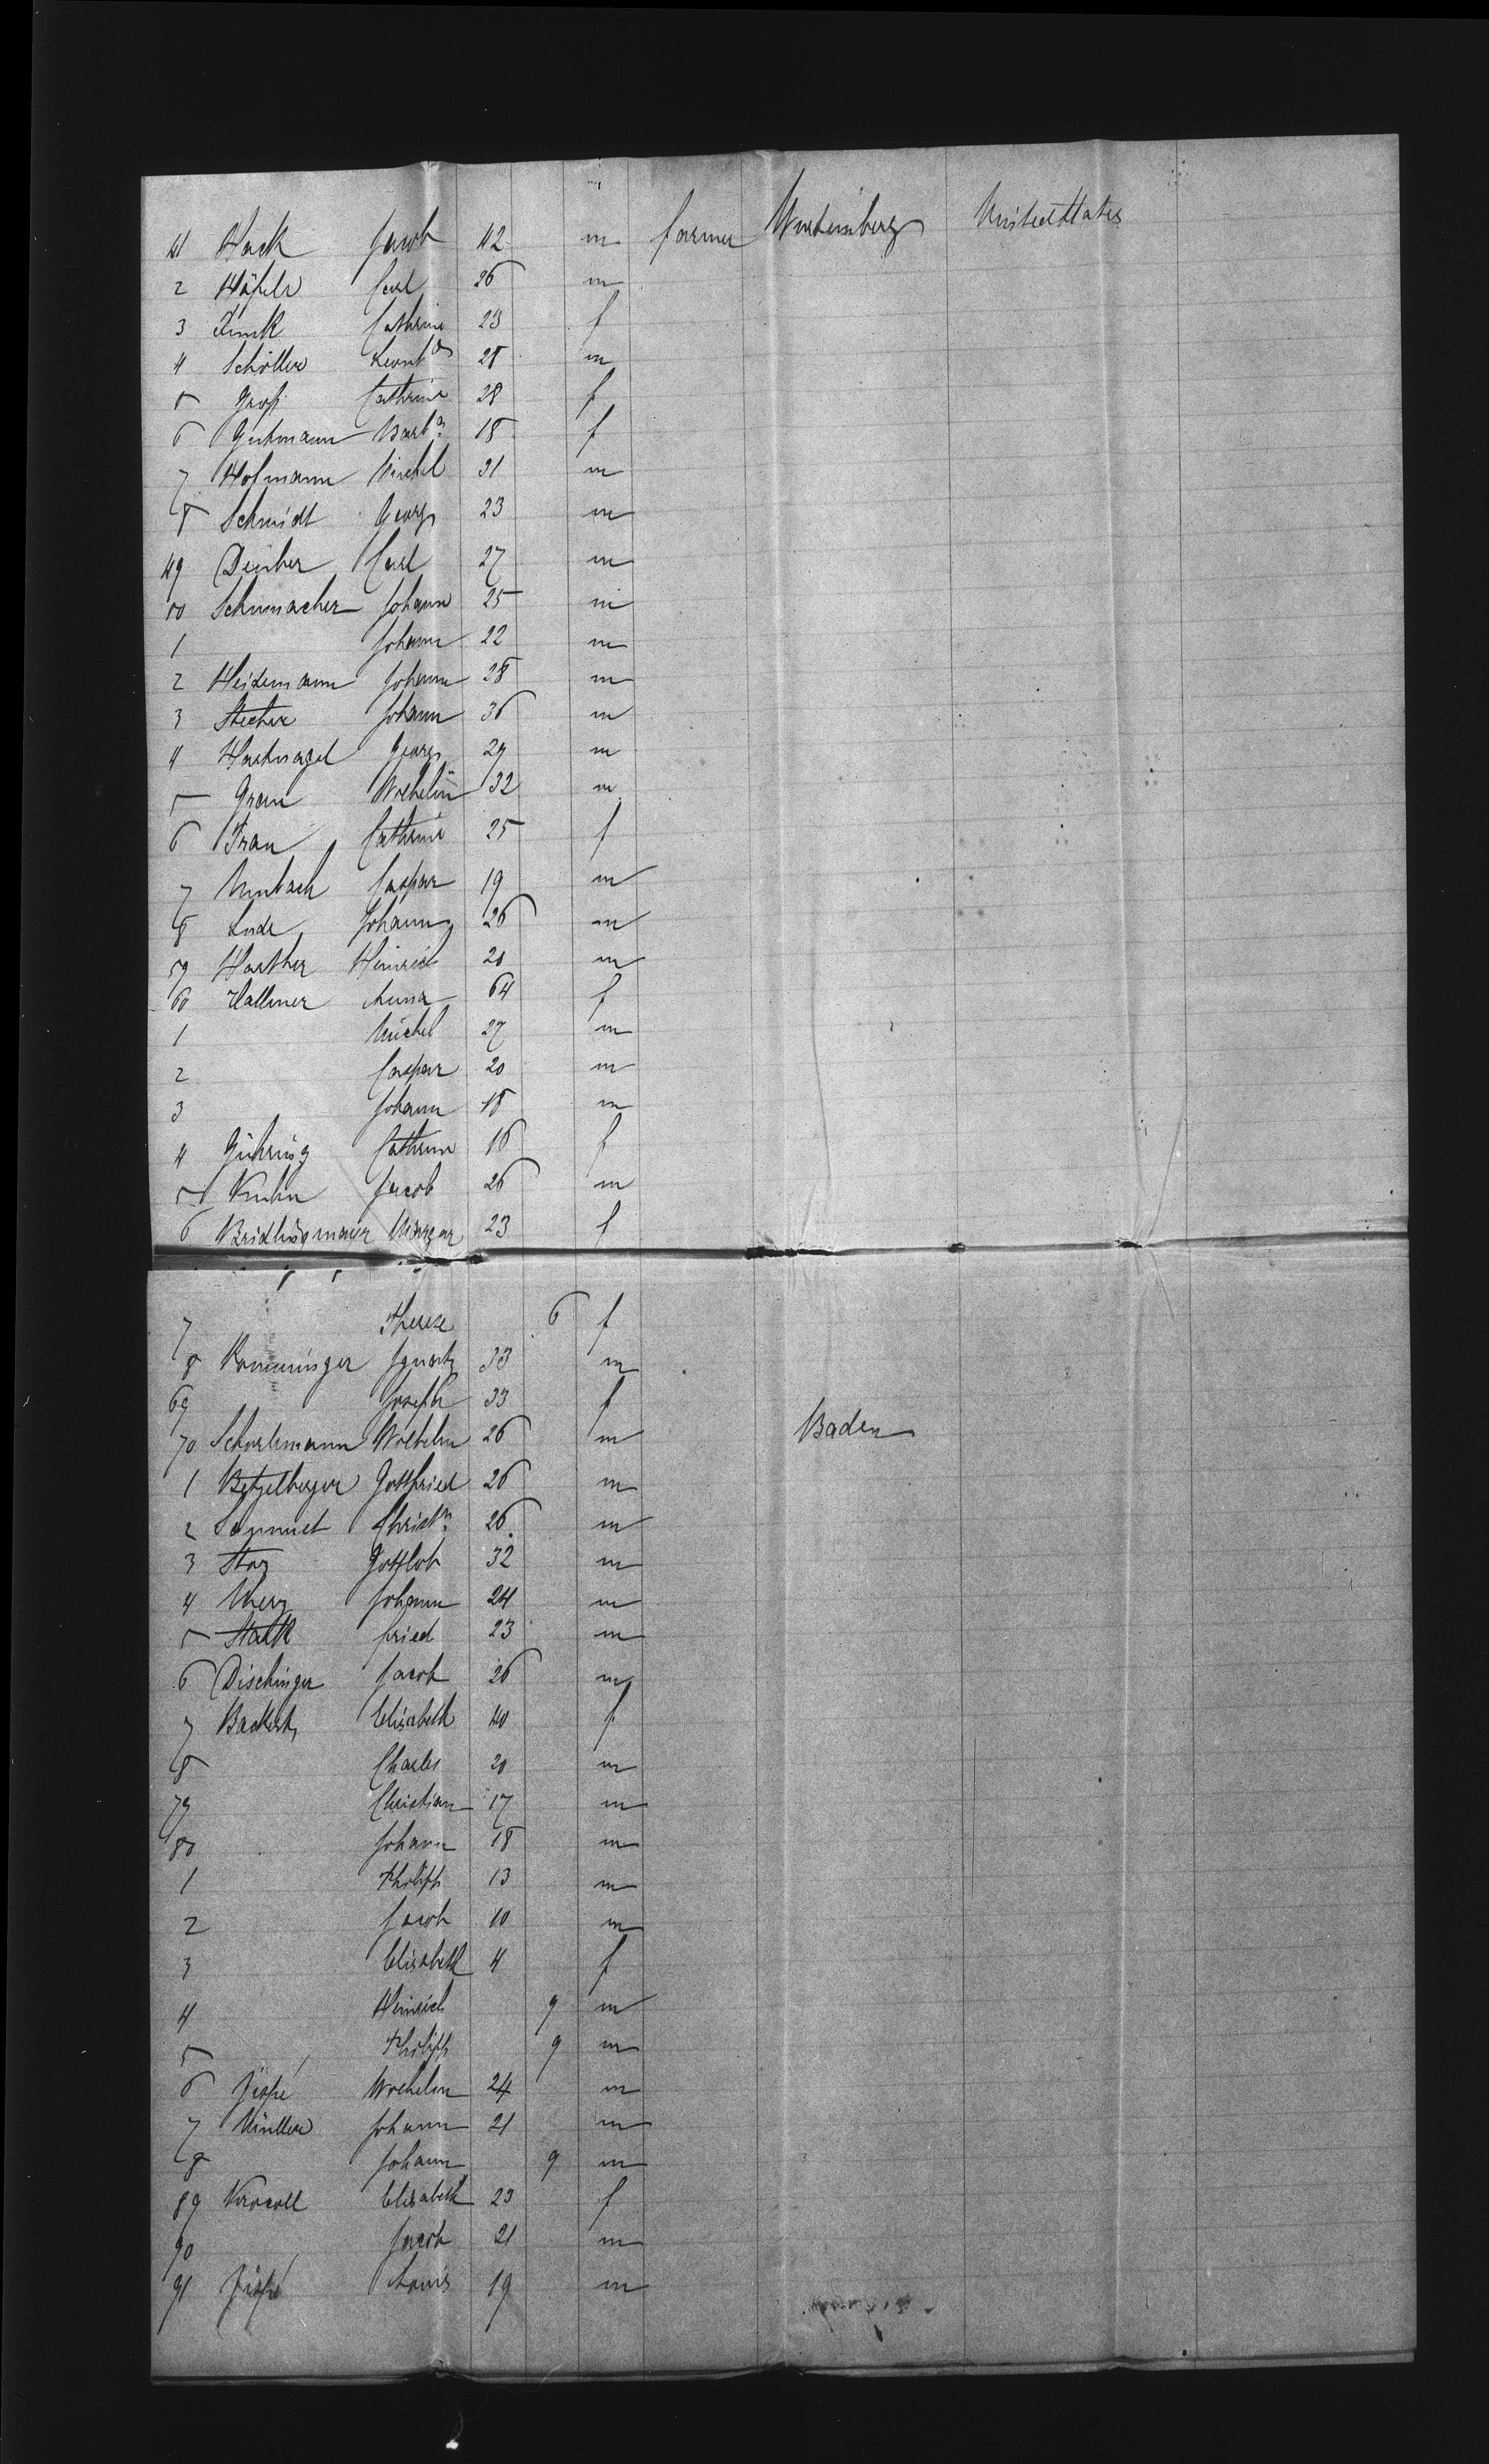 41 Hack Jacob 42 m farmer Wurtemberg United States
2 Häfele Carl 26 m
3 Zink Cathrine 23 f
4 Schöller Leonhd 28 m
5 Groß Cathrine 28 f
6 Gutmann Barba 18 f
7 Hofmann Michel 31 m
8 Schmidt Georg 23 m
49 Deuber Carl 27 m
50 Schumacher Johann 25 m
1 Johann 22 m
2 Heidemann Johann 28 m
3 Stecher Johann 36 m
4 Hartnagel Georg 29 m
5 Grau Wilhelm 32 m
6 Frau Cathrine 25 f
7 Umbach Caspar 19 m
8 Lude Johann 26 m
59 Harther Heinrich 20 m
60 Hallmer Anna 64 f
1 Michel 27 m
2 Caspar 20 m
3 Johann 18 m
4 Gühring Cathrine 16 f
5 Kuhn Jacob 26 m
6 Bridlingmaier Margar 23 f
7 Therese 6 f
8 Ignatz 33 m
69 Joseph 33 f
70 Scharlemann Wilhelm 26 m Baden
1 Betzelberger Gottfried 26 m
2 Christn 26 m
3 Staz Gottlob 32 m
4 Merz Johann 24 m
5 Stark fried 23 m
6 Dischinger Jacob 26 m
7 Backert Elisabeth 40 f
8 Charles 20 m
79 Christian 17 m
80 Johann 18 m
1 Philipp 13 m
2 Jacob 10 m
3 Elisabeth 4 f
4 Heinrich 9 m
5 Philipp 9 m
6 Wilhelm 24 m
7 Müller Johann 21 m
8 Johann 9 m
89 Krocoll Elisabeth 23 f
90 Jacob 21 m
91 Louis 19 m